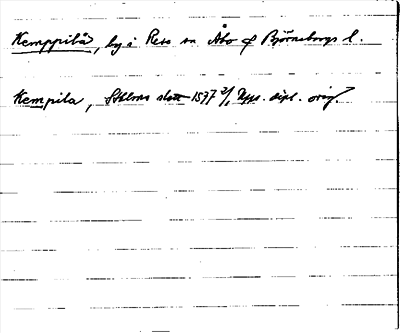 Kemppilä, by i Reso sn Åbo o Björneborgs l.
Kempila, Sthlms slott 1577 2/1 Upps. dipl. orig.